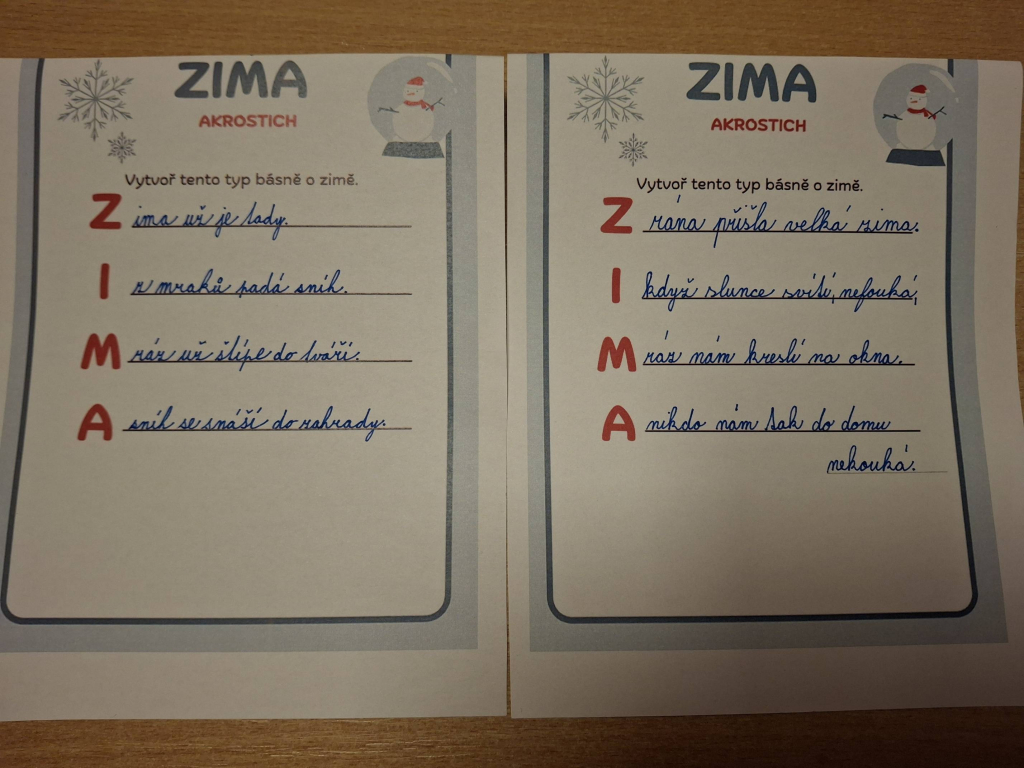 ZIMA
AKROSTICH
Vytvoř tento typ básně o zimě.
Zima už je tady.
I z mraků padá sníh.
Mráz už štípe do tváří.
A sníh se snáší do zahrady.
ZIMA
AKROSTICH
Vytvoř tento typ básně o zimě.
Z rána přišla velká zima.
I když slunce svítí, nefouká,
Mráz nám kreslí na okna.
A nikdo nám tak do domu
nekouká.